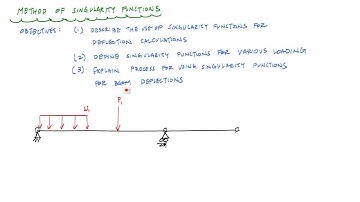 METHOD OF SINGULARITY FUNCTIONS
OBJECTIVES: (1) DESCRIBE THE USE OF SINGULARITY FUNCTIONS FOR
DEFLECTION CALCULATIONS
(2) DEFINE SINGULARITY FUNCTIONS FOR VARIOUS LOADING
(3) EXPLAIN PROCESS FOR USING SINGULARITY FUNCTIONS
FOR BEAM DEFLECTIONS
W₁
P₁